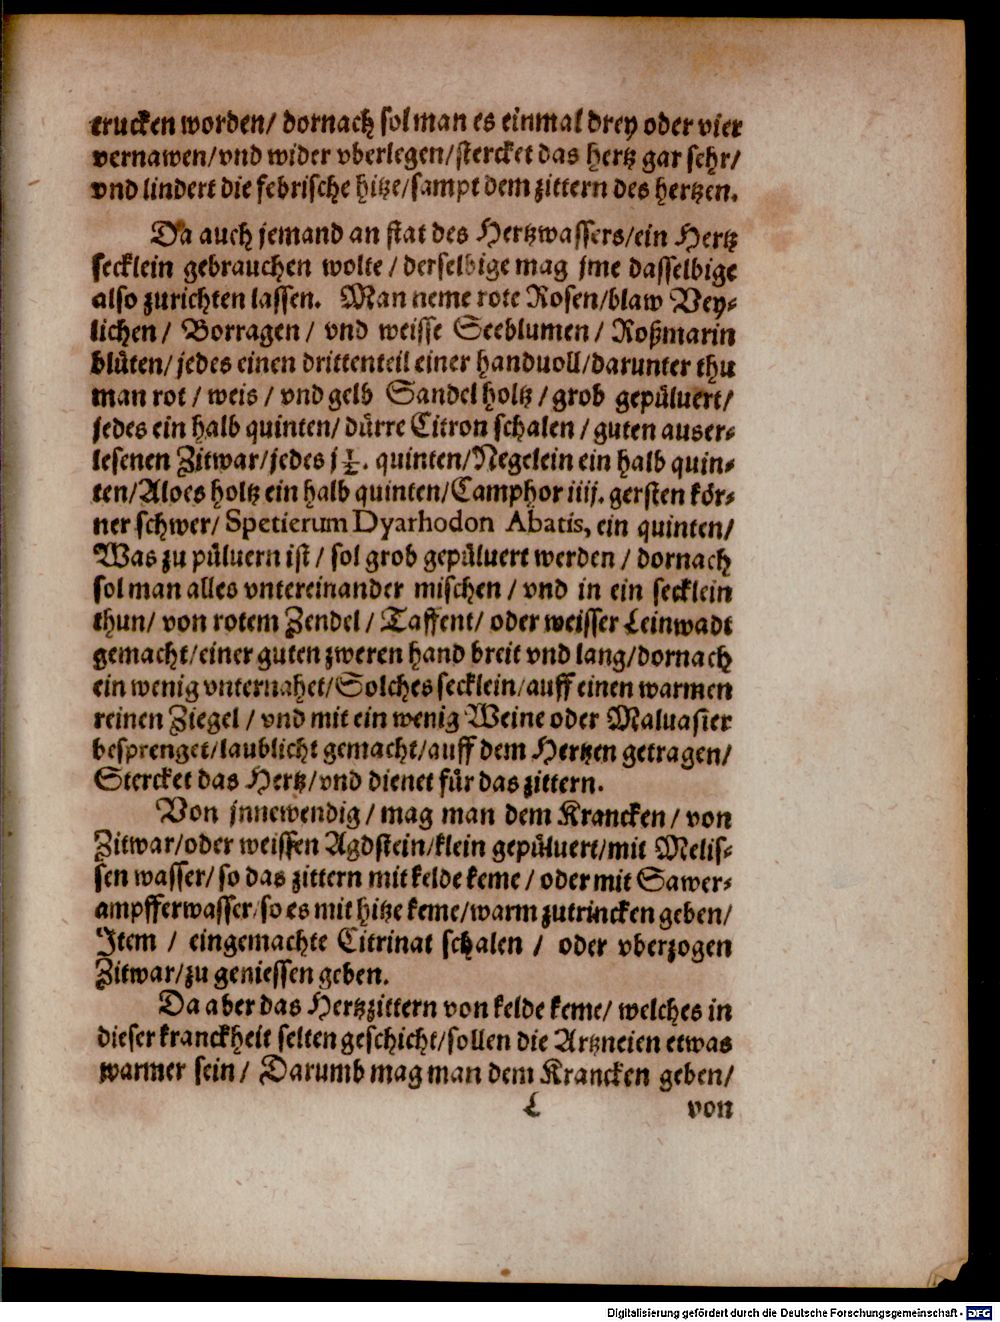 trucken worden/ dornach sol man es einmal drey oder vier
vernawen/vnd wider vberlegen/stercket das hertz gar sehr/
vnd lindert die febrische hitze/sampt dem zittern des hertzen.
Da auch jemand an stat des Hertzwassers/ein Hertz
secklein gebrauchen wolte / derselbige mag jme dasselbige
also zurichten lassen. Man neme rote Rosen/blaw Vey-
lichen/ Borragen/ vnd weisse Seeblumen/ Roßmarin
blüten/jedes einen drittenteil einer handuoll/darunter thu
man rot / weis / vnd gelb Sandel holtz / grob gepüluert/
jedes ein halb quinten/ dürre Citron schalen / guten auser-
lesenen Zitwar/jedes j ½. quinten/Negelein ein halb quin-
ten/Aloes holtz ein halb quinten/Camphor iiij. gersten kör-
ner schwer/ Spetierum Dyarhodon Abatis, ein quinten/
Was zu püluern ist / sol grob gepüluert werden / dornach
sol man alles vntereinander mischen / vnd in ein secklein
thun/ von rotem Zendel / Taffent/ oder weisser Leinwadt
gemacht/einer guten zweren hand breit vnd lang/dornach
ein wenig vnternahet/Solches secklein/auff einen warmen
reinen Ziegel / vnd mit ein wenig Weine oder Maluasier
besprenget/laublicht gemacht/auff dem Hertzen getragen/
Stercket das Hertz/vnd dienet für das zittern.
Von jnnewendig / mag man dem Krancken / von
Zitwar/oder weissen Agdstein/klein gepüluert/mit Melis-
sen wasser/ so das zittern mit kelde keme / oder mit Sawer-
ampfferwasser/so es mit hitze keme/warm zutrincken geben/
Item / eingemachte Citrinat schalen / oder vberzogen
Zitwar/zu geniessen geben.
Da aber das Hertzzittern von kelde keme/ welches in
dieser kranckheit selten geschicht/sollen die Artzneien etwas
warmer sein/ Darumb mag man dem Krancken geben/
L von
Digitalisierung gefördert durch die Deutsche Forschungsgemeinschaft - DFG